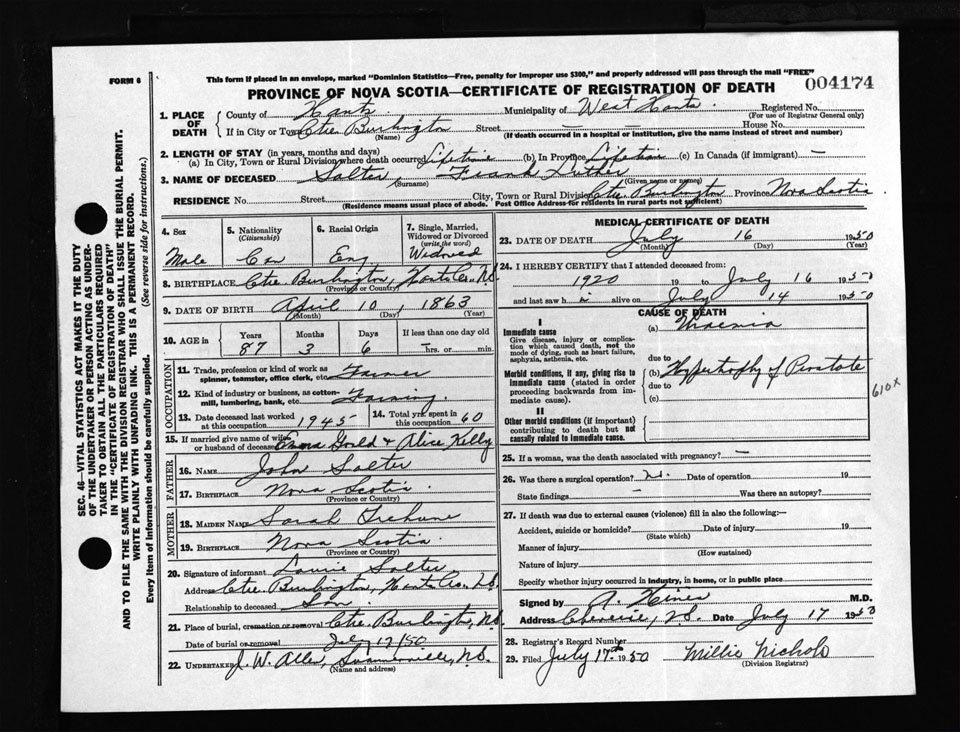 FORM 6
This form if placed in an envelope, marked "Dominion Statistics—Free, penalty for improper use $300," and properly addressed will pass through the mail "FREE"
PROVINCE OF NOVA SCOTIA—CERTIFICATE OF REGISTRATION OF DEATH
004174
SEC. 46—VITAL STATISTICS ACT MAKES IT THE DUTY
OF THE UNDERTAKER OR PERSON ACTING AS UNDER-
TAKER TO OBTAIN ALL THE PARTICULARS REQUIRED
IN THE "CERTIFICATE OF REGISTRATION OF DEATH"
AND TO FILE THE SAME WITH THE DIVISION REGISTRAR WHO SHALL ISSUE THE BURIAL PERMIT.
WRITE PLAINLY WITH UNFADING INK. THIS IS A PERMANENT RECORD.
Every item of Information should be carefully supplied. (See reverse side for instructions.)
1. PLACE OF DEATH
County of Hants Municipality of West Hants Registered No.
(For use of Registrar General only)
If in City or Town Ctre. Burlington Street — House No. —
(Name) (If death occurred in a hospital or institution, give the name instead of street and number)
2. LENGTH OF STAY (in years, months and days)
(a) In City, Town or Rural Division where death occurred Lifetime (b) In Province Lifetime (c) In Canada (if immigrant) —
3. NAME OF DECEASED Salter, Frank Luther
(Surname) (Given name or names)
RESIDENCE No. Street City, Town or Rural Division Ctre Burlington Province Nova Scotia
(Residence means usual place of abode. Post Office Address for residents in rural parts not sufficient)
4. Sex
Male
5. Nationality
(Citizenship)
Can
6. Racial Origin
Eng
7. Single, Married,
Widowed or Divorced
(write the word)
Widowed
8. BIRTHPLACE Ctre. Burlington, Hants Co., N.S.
(Province or Country)
9. DATE OF BIRTH April 10, 1863
(Month) (Day) (Year)
10. AGE in
Years Months Days If less than one day old
87 3 6 — hrs. or min.
OCCUPATION
11. Trade, profession or kind of work as
spinner, teamster, office clerk, etc. Farmer
12. Kind of industry or business, as cotton-
mill, lumbering, bank, etc. Farming
13. Date deceased last worked
at this occupation 1945
14. Total yrs. spent in
this occupation 60
15. If married give name of wife
or husband of deceased Gould & Alice Kelly
FATHER
16. NAME John Salter
17. BIRTHPLACE Nova Scotia
(Province or Country)
MOTHER
18. MAIDEN NAME Sarah
19. BIRTHPLACE Nova Scotia
(Province or Country)
20. Signature of informant Laurie Salter
Address Ctre. Burlington, Hants Co. N.S.
Relationship to deceased Son
21. Place of burial, cremation or removal Ctre. Burlington, N.S.
Date of burial or removal July 17/50
22. UNDERTAKER J. W. Summerville, N.S.
(Name and address)
MEDICAL CERTIFICATE OF DEATH
23. DATE OF DEATH July 16 1950
(Month) (Day) (Year)
24. I HEREBY CERTIFY that I attended deceased from:
1920 19 to July 16 1950
and last saw h im alive on July 14 1950
CAUSE OF DEATH
I
Immediate cause
Give disease, injury or complica-
tion which caused death, not the
mode of dying, such as heart failure,
asphyxia, asthenia, etc.
(a) Uraemia
due to
Morbid conditions, if any, giving rise to
immediate cause (stated in order
proceeding backwards from im-
mediate cause).
(b) Hypertrophy of Prostate
due to
(c)
610x
II
Other morbid conditions (if important)
contributing to death but not
causally related to immediate cause.
25. If a woman, was the death associated with pregnancy? —
26. Was there a surgical operation? No. Date of operation 19
State findings — Was there an autopsy?
27. If death was due to external causes (violence) fill in also the following:—
Accident, suicide or homicide? Date of injury 19
(State which)
Manner of injury
(How sustained)
Nature of injury
Specify whether injury occurred in industry, in home, or in public place
Signed by M.D.
Address Cheverie, N.S. Date July 17 1950
28. Registrar's Record Number
29. Filed July 17th 1950 Millie Nichols
(Division Registrar)